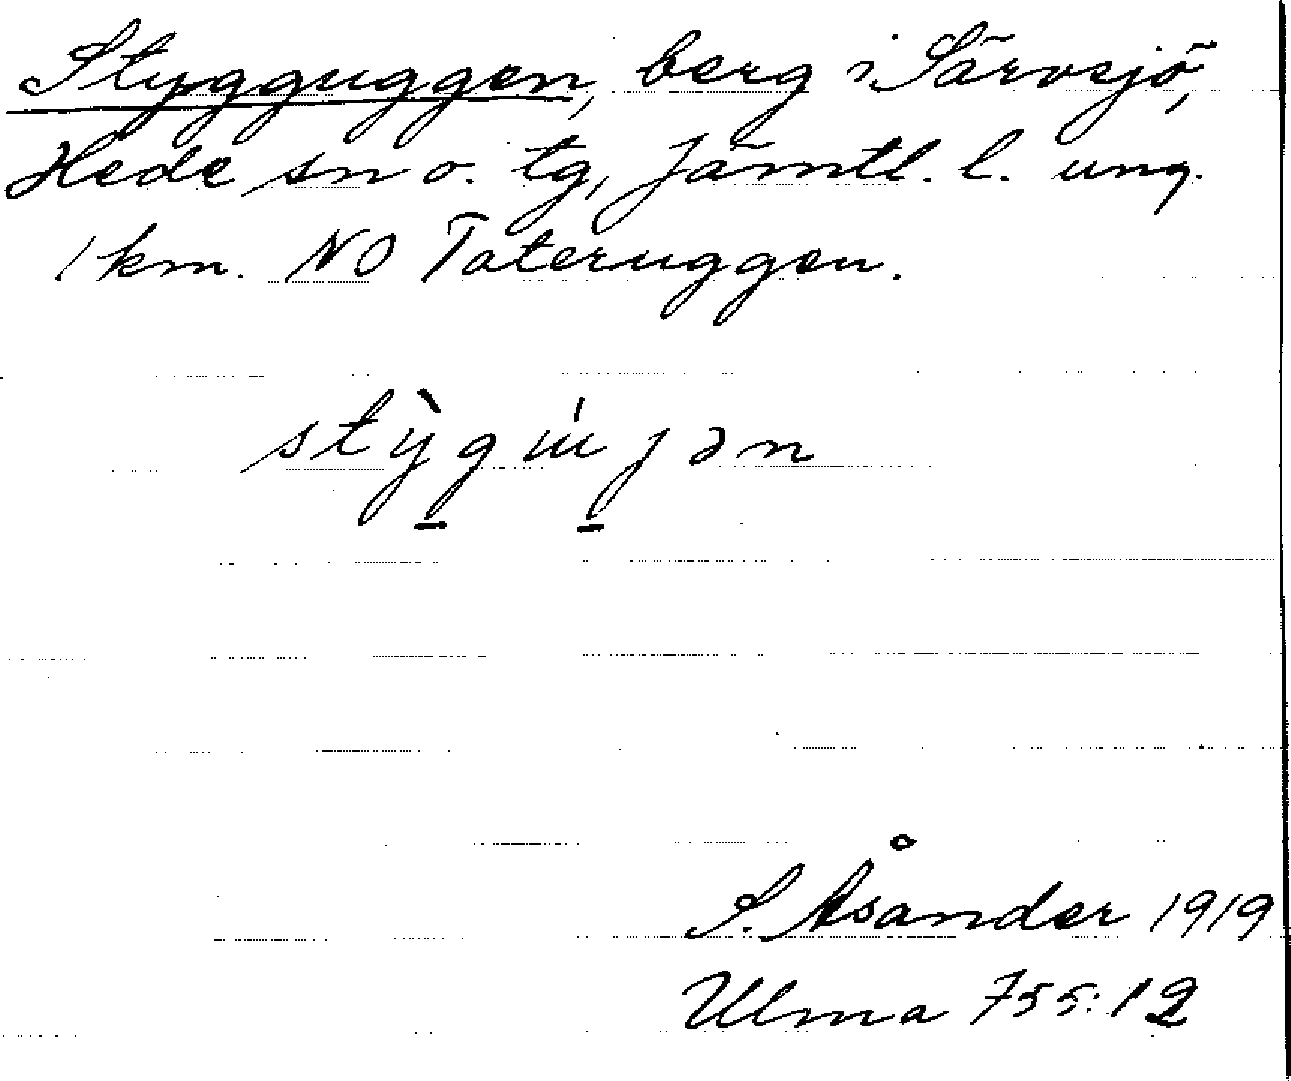 Stygguggen, berg i Särvsjö,
Hede sn o. tg, Jämtl. l. ung.
1 km. NO Tateruggen.
S. Åsander 1919
Ulma 755:12